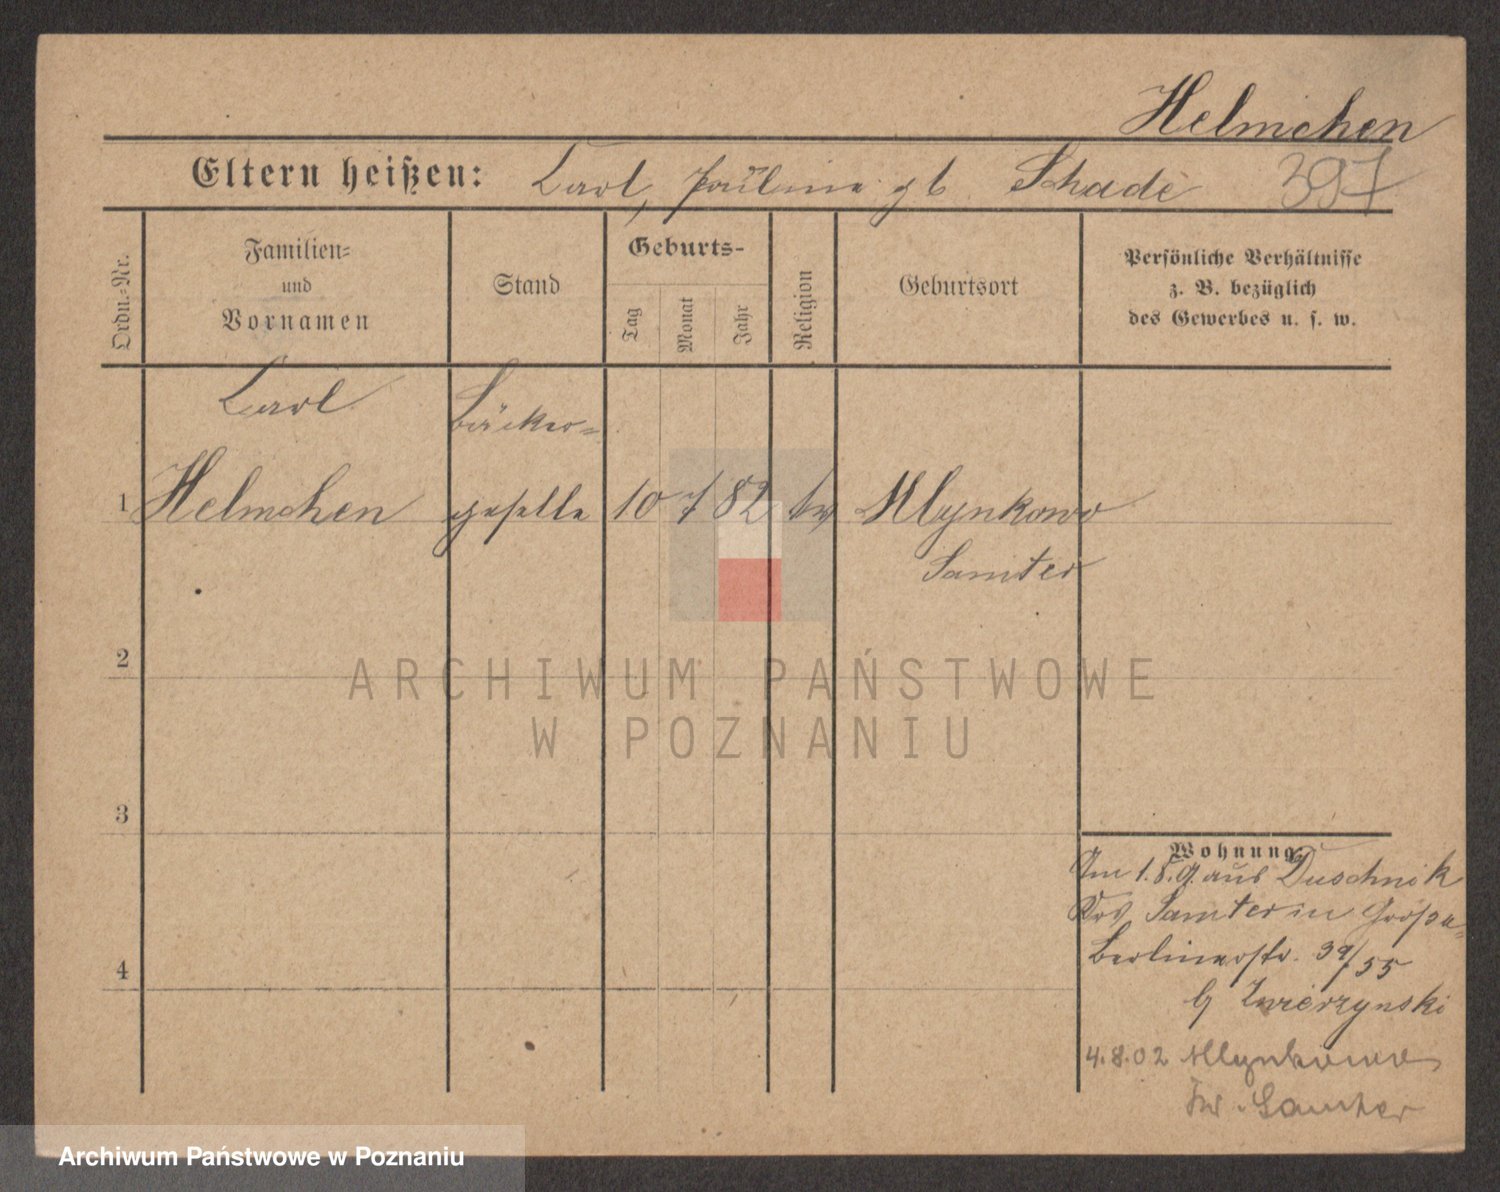 Helmchen
Eltern heißen: Carl, Pauline gb Schade 397
Ordn.-Nr.
Familien-
und
Vornamen
Stand
Geburts-
Tag
Monat
Jahr
Religion
Geburtsort
Persönliche Verhältnisse
z. B. bezüglich
des Gewerbes u. s. w.
Carl Bäcker-
1 Helmchen geselle 10 7 82 ev Mlynkowo
Samter
2
ARCHIWUM PAŃSTWOWE
W POZNANIU
3
Wohnung
Am 1.8. aus Duschnik
Krs Samter in Große-
Berlinerstr. 39/55
b Zwierzynski
4
4.8.02 Mlynkowo
Kr. Samter
Archiwum Państwowe w Poznaniu